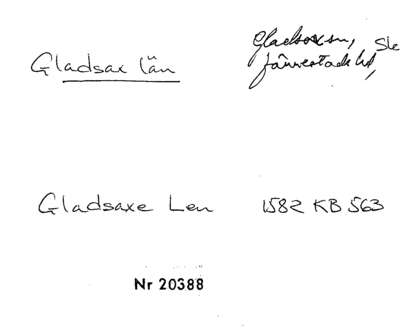 Gladsax län
Gladsax sn, Sk
Järrestads hd,
Gladsaxe Len 1582 KB 563
Nr 20388